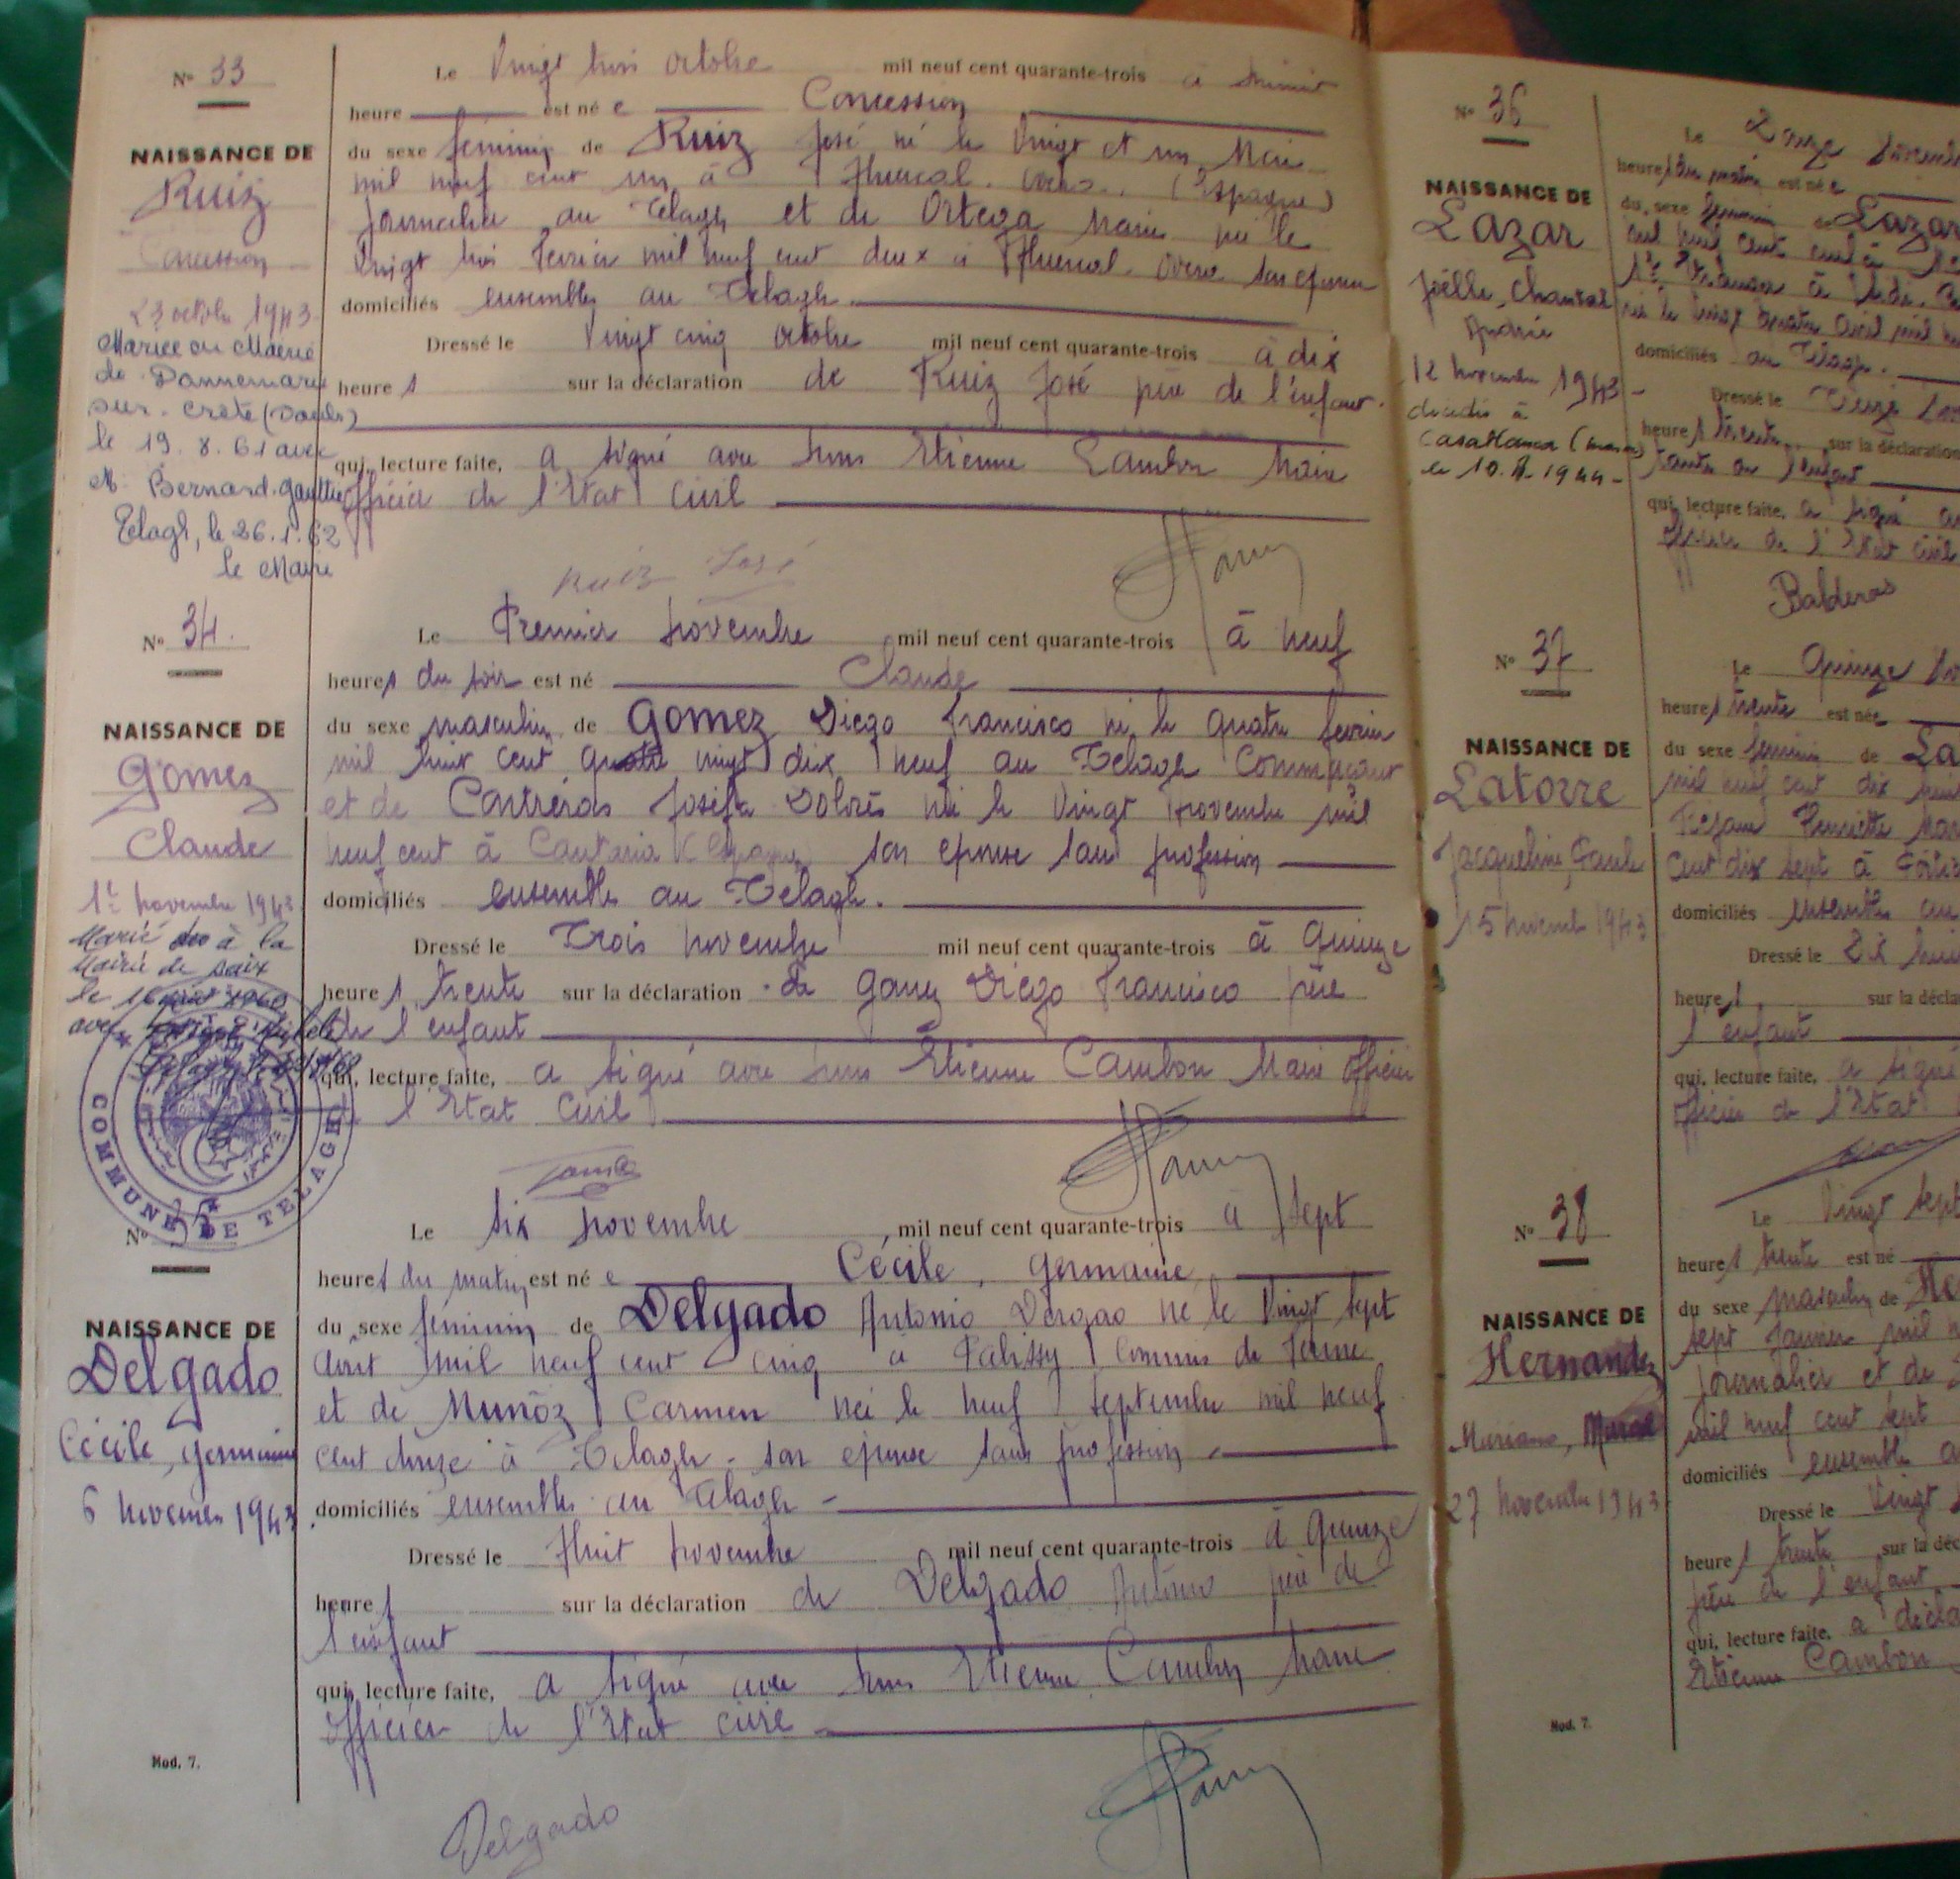 N° 33
NAISSANCE DE
Ruiz
Concession
23 octobre 1943
Mariée en Mairie
de Dannemarie
sur - Crète (Doubs)
le 19. 8. 61 avec
M. Bernard. Gaultier
Télagh, le 26.1.62
le Maire
Le Vingt trois octobre mil neuf cent quarante-trois à minuit
heure est né e Concession
du sexe féminin de Ruiz José né le Vingt et un Mai
mil neuf cent un à (Espagne)
journalier au Télagh et de Ortega Marie née le
Vingt trois Février mil neuf cent deux à son épouse
domiciliés ensembles au Télagh.
Dressé le Vingt cinq octobre mil neuf cent quarante-trois à dix
heures sur la déclaration de Ruiz José père de l'enfant.
qui, lecture faite, a signé avec nous Etienne Cambon Maire
officier de l'Etat Civil
Ruiz José
N° 34.
NAISSANCE DE
Gomez
Claude
1er novembre 1943
Marié à la
Mairie de Saix
le 16 août 1968
avec
Le Premier novembre mil neuf cent quarante-trois à neuf
heures du soir est né Claude
du sexe masculin de Gomez Diego Francisco né le quatre février
mil huit cent quatre vingt dix neuf au Télagh Commerçant
et de Contreras Josefa Dolorès née le Vingt novembre mil
neuf cent à Cantoria (Espagne) son épouse sans profession
domiciliés ensembles au Télagh.
Dressé le Trois novembre mil neuf cent quarante-trois à quinze
heures trente sur la déclaration de Gomez Diego Francisco père
de l'enfant
qui, lecture faite, a signé avec nous Etienne Cambon Maire officier
de l'Etat Civil
COMMUNE DE TELAGH
N° 35
NAISSANCE DE
Delgado
Cécile, Germaine
6 novembre 1943.
Le six novembre mil neuf cent quarante-trois à sept
heures du matin est né e Cécile, Germaine
du sexe féminin de Delgado Antonio né le Vingt sept
août mil neuf cent cinq à Palissy Commis de Ferme
et de Munoz Carmen née le neuf septembre mil neuf
cent douze à Télagh - son épouse sans profession
domiciliés ensembles au Télagh -
Dressé le Huit novembre mil neuf cent quarante-trois à quinze
heures sur la déclaration de Delgado Antonio père de
l'enfant
qui, lecture faite, a signé avec nous Etienne Cambon Maire
officier de l'Etat civil
Mod. 7.
Delgado
N° 36
NAISSANCE DE
Lazar
Joëlle, Chantal
Andrée
12 novembre 1943 -
décédée à
Casablanca (Maroc)
Le
heures du matin est né e
du sexe féminin de Lazar
domiciliés au Télagh.
Dressé le
heures trente sur la déclaration
tante de l'enfant
qui, lecture faite, a signé
officier de l'Etat civil
Balderas
N° 37
NAISSANCE DE
Latorre
Jacqueline, Paule
15 novembre 1943
Le Quinze
heures trente est née
du sexe féminin de La
mil neuf cent dix
Réjane Henriette
cent dix sept à
domiciliés ensembles au
Dressé le Dix huit
heures sur la décla
l'enfant
qui, lecture faite, a signé
officier de l'Etat
N° 38
NAISSANCE DE
Hernandez
27 novembre 1943
Le Vingt sept
heures trente est né
du sexe masculin de He
sept Janvier mil
journalier et de
mil neuf cent sept
domiciliés ensemble a
Dressé le Vingt
heures trente sur la déc
père de l'enfant
qui, lecture faite, a décla
Etienne Cambon
Mod. 7.